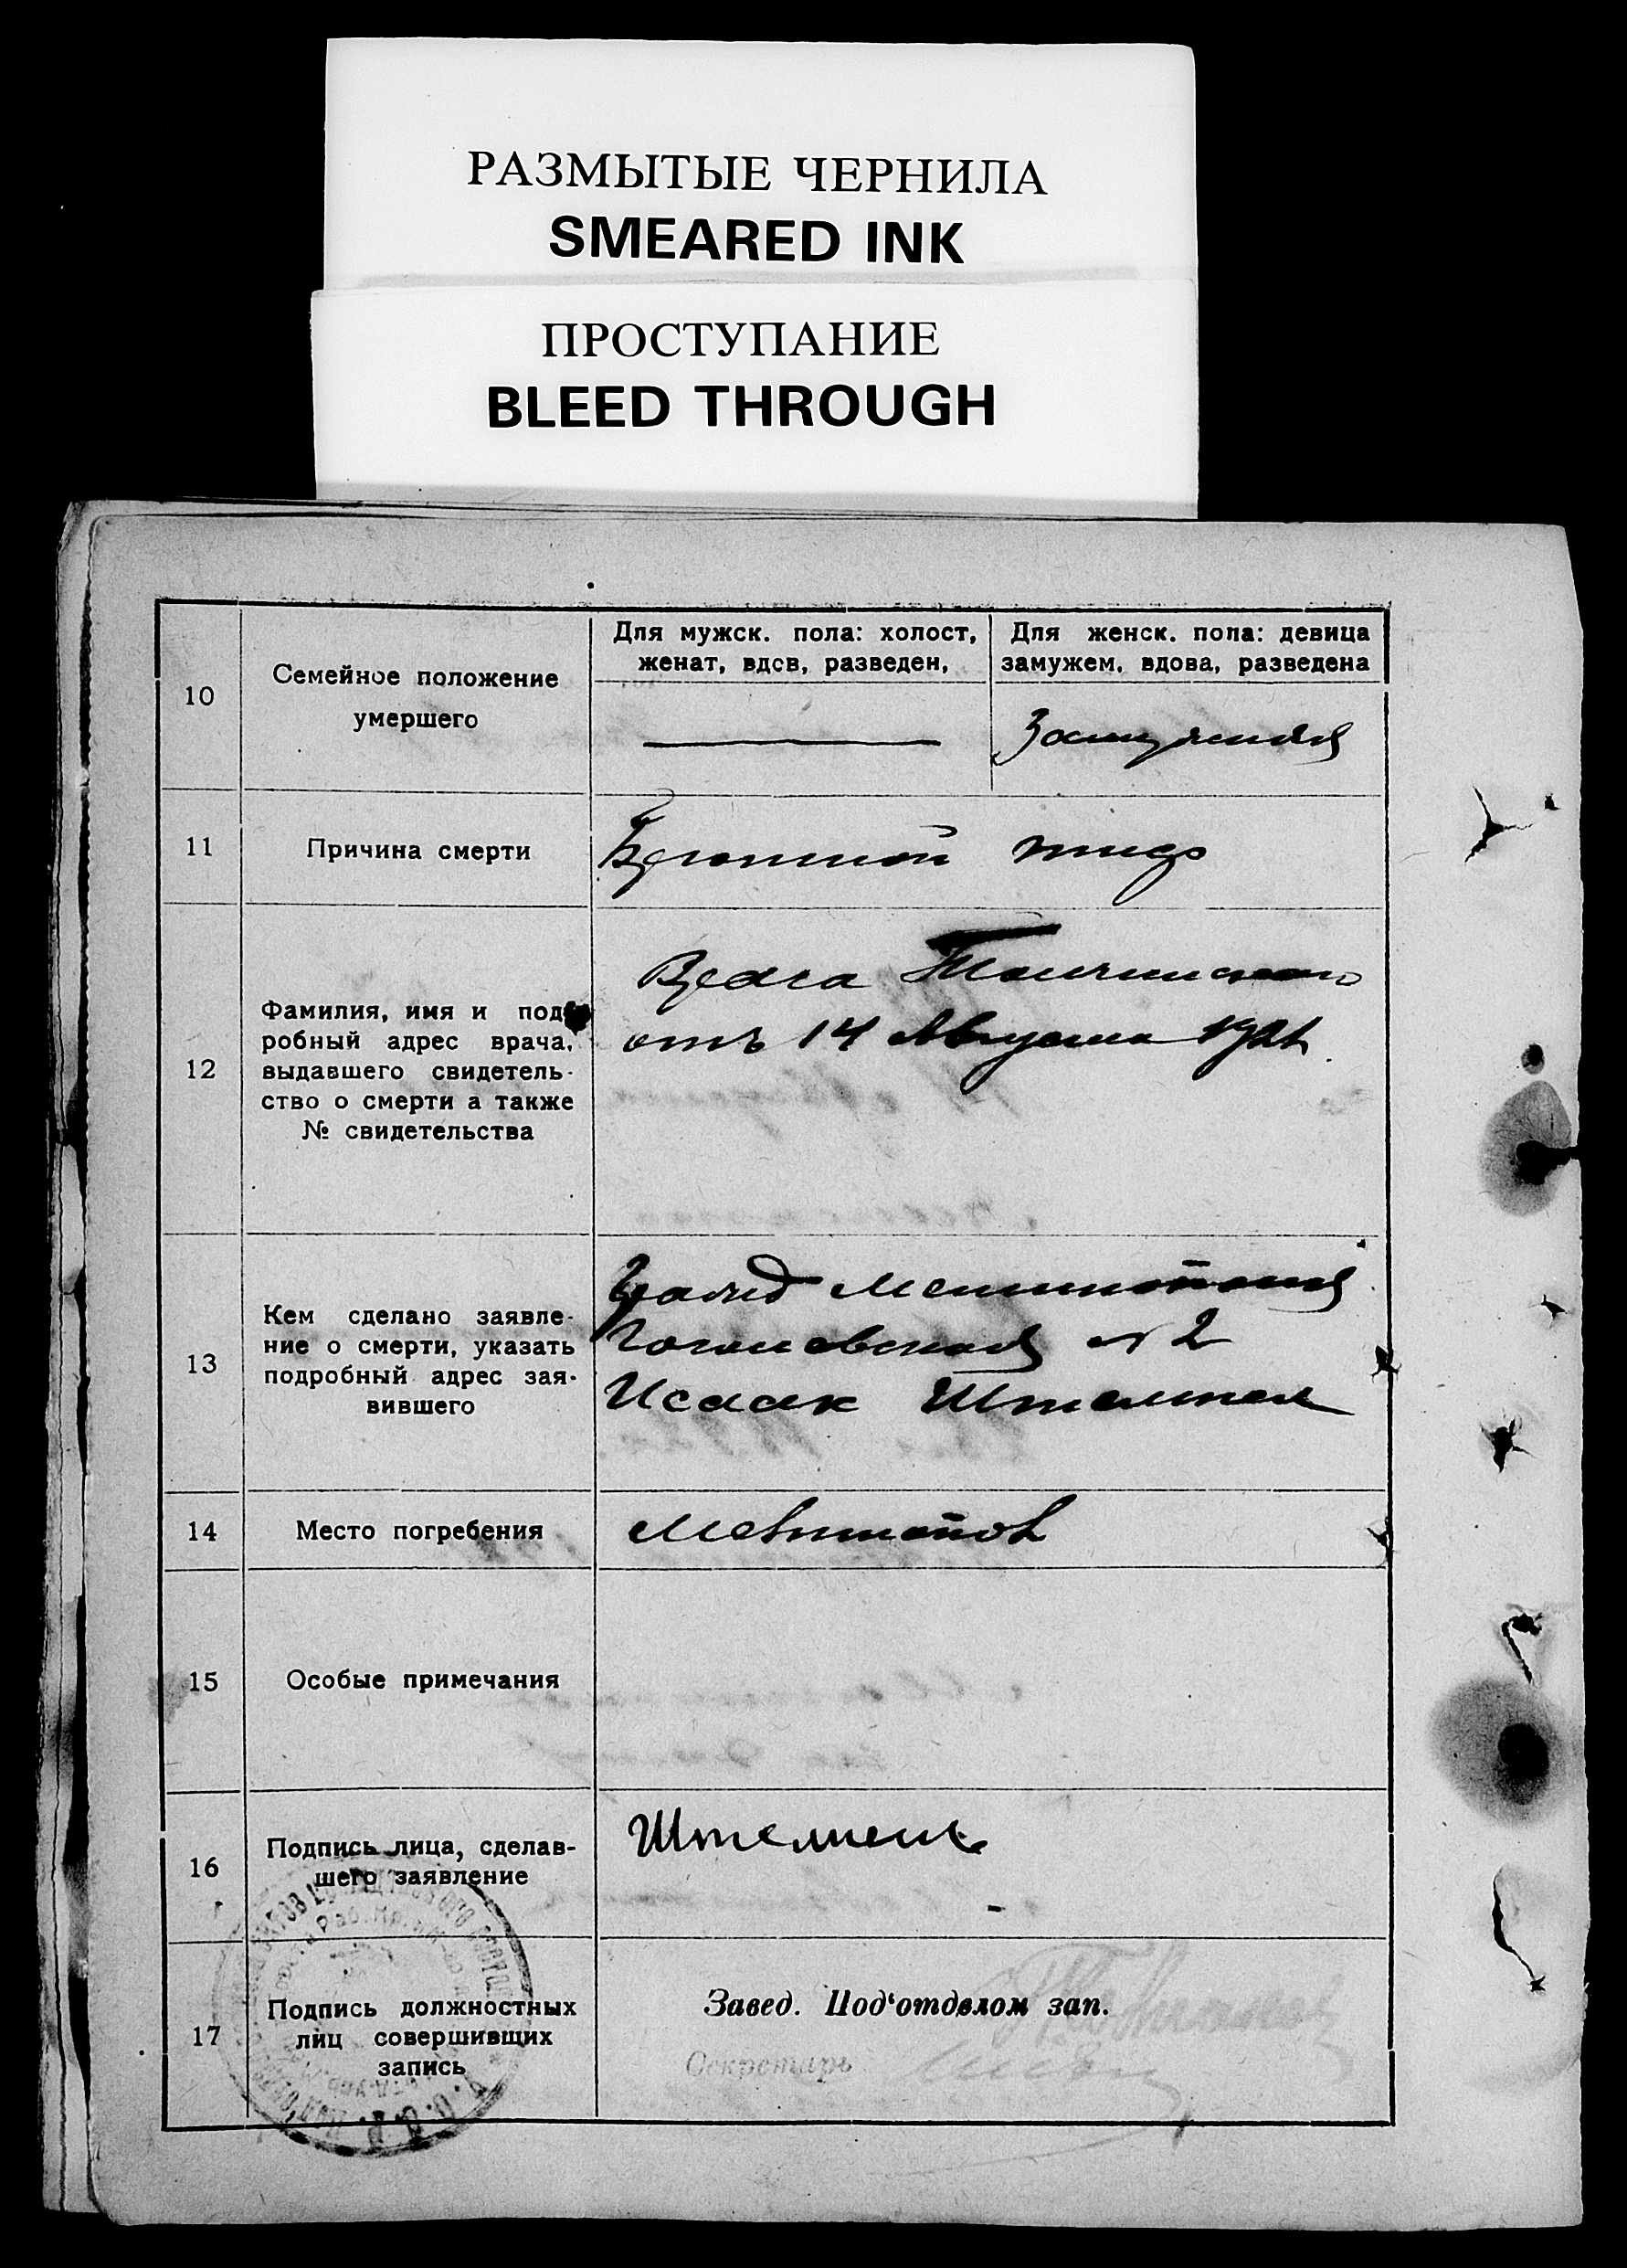 РАЗМЫТЫЕ ЧЕРНИЛА
SMEARED INK
ПРОСТУПАНИЕ
BLEED THROUGH
10
Семейное положение
умершего
Для мужск. пола: холост,
женат, вдов, разведен,
Для женск. пола: девица
замужем, вдова, разведена
Замужняя
11
Причина смерти
Брюшной тиф
12
Фамилия, имя и под-
робный адрес врача,
выдавшего свидетель-
ство о смерти а также
№ свидетельства
Врача
отъ 14 Августа 1921
13
Кем сделано заявле-
ние о смерти, указать
подробный адрес зая-
вившего
Город Мелитополь
№ 2
Исаак
14
Место погребения
Мелитополь
15
Особые примечания
16
Подпись лица, сделав-
шего заявление
17
Подпись должностных
лиц совершивщих
запись
Завед. Под‘отделом зап.
Секретарь